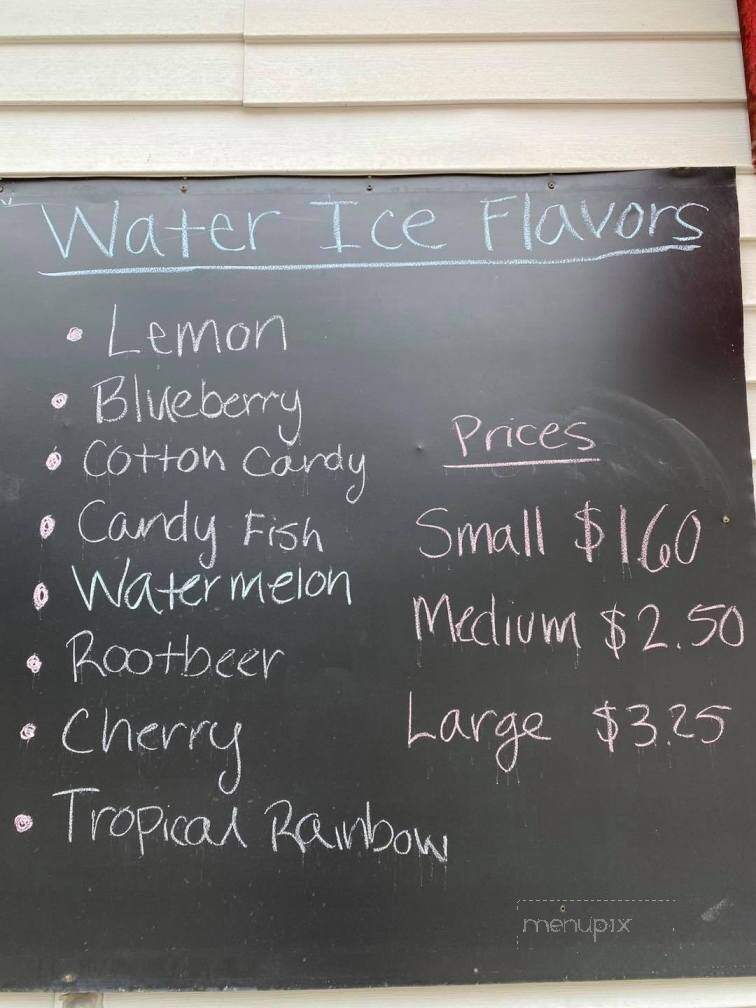 Water Ice Flavors
• Lemon
• Blueberry
• Cotton Candy
• Candy Fish
• Watermelon
• Rootbeer
• Cherry
• Tropical Rainbow
Prices
Small $1.60
Medium $2.50
Large $3.25
menupix